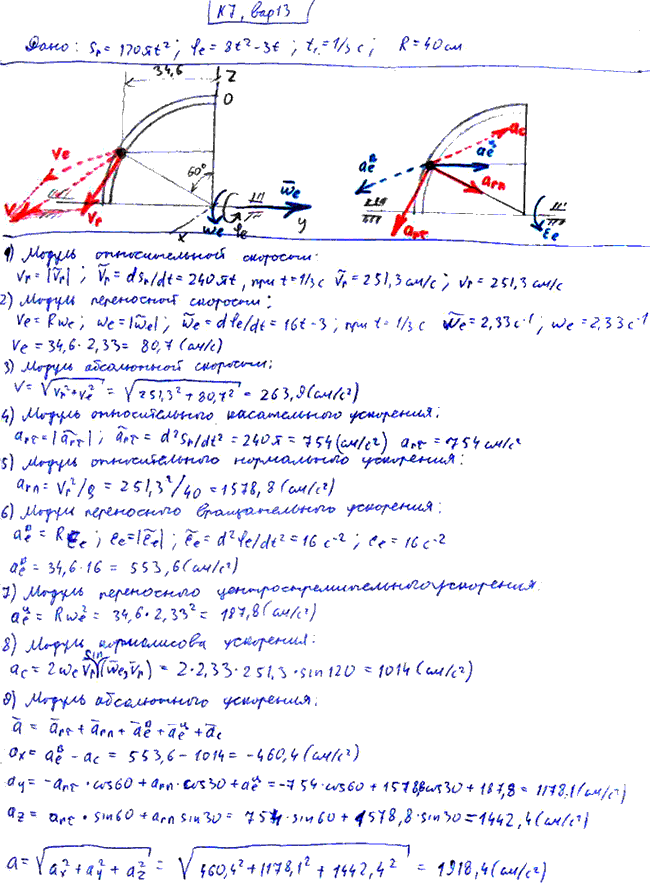 К7, вар13
Дано: Sr = 120πt²; φe = 8t²-3t; t₁ = 1/3 c; R = 40 см
34,6
Z
O
60°
Ve
V
Vr
x
ω̄e
ωe
φe
y
ac
aeᵇ
aeᶣ
arn
arτ
εe
1) Модуль относительной скорости:
Vr = |Ṽr|; Ṽr = dSr/dt = 240πt, при t = 1/3 c Ṽr = 251,3 см/с; Vr = 251,3 см/с
2) Модуль переносной скорости:
Ve = Rωe; ωe = |ω̃e|; ω̃e = dφe/dt = 16t-3; при t = 1/3 c ω̃e = 2,33 c⁻¹; ωe = 2,33 c⁻¹
Ve = 34,6·2,33 = 80,7 (см/с)
3) Модуль абсолютной скорости:
V = √(Vr² + Ve²) = √(251,3² + 80,7²) = 263,9 (см/с²)
4) Модуль относительного касательного ускорения:
arτ = |ãrτ|; ãrτ = d²Sr/dt² = 240π = 754 (см/с²) arτ = 754 см/с²
5) Модуль относительного нормального ускорения:
arn = Vr²/ρ = 251,3²/40 = 1578,8 (см/с²)
6) Модуль переносного вращательного ускорения:
aeᵇ = Rεe; εe = |ε̃e|; ε̃e = d²φe/dt² = 16 c⁻²; εe = 16 c⁻²
aeᵇ = 34,6·16 = 553,6 (см/с²)
7) Модуль переносного центростремительного ускорения.
aeᶣ = Rωe² = 34,6·2,33² = 187,8 (см/с²)
8) Модуль кориолисова ускорения:
ac = 2ωe Vr sin(ω̄e, V̄r) = 2·2,33·251,3·sin120 = 1014 (см/с²)
9) Модуль абсолютного ускорения:
ā = ārτ + ārn + āeᵇ + āeᶣ + āc
ax = aeᵇ - ac = 553,6 - 1014 = -460,4 (см/с²)
ay = -arτ·cos60 + arn·cos30 + aeᶣ = -754·cos60 + 1578,8cos30 + 187,8 = 1178,1 (см/с²)
az = arτ·sin60 + arn sin30 = 754·sin60 + 1578,8·sin30 = 1442,4 (см/с²)
a = √(ax² + ay² + az²) = √(460,4² + 1178,1² + 1442,4²) = 1918,4 (см/с²)